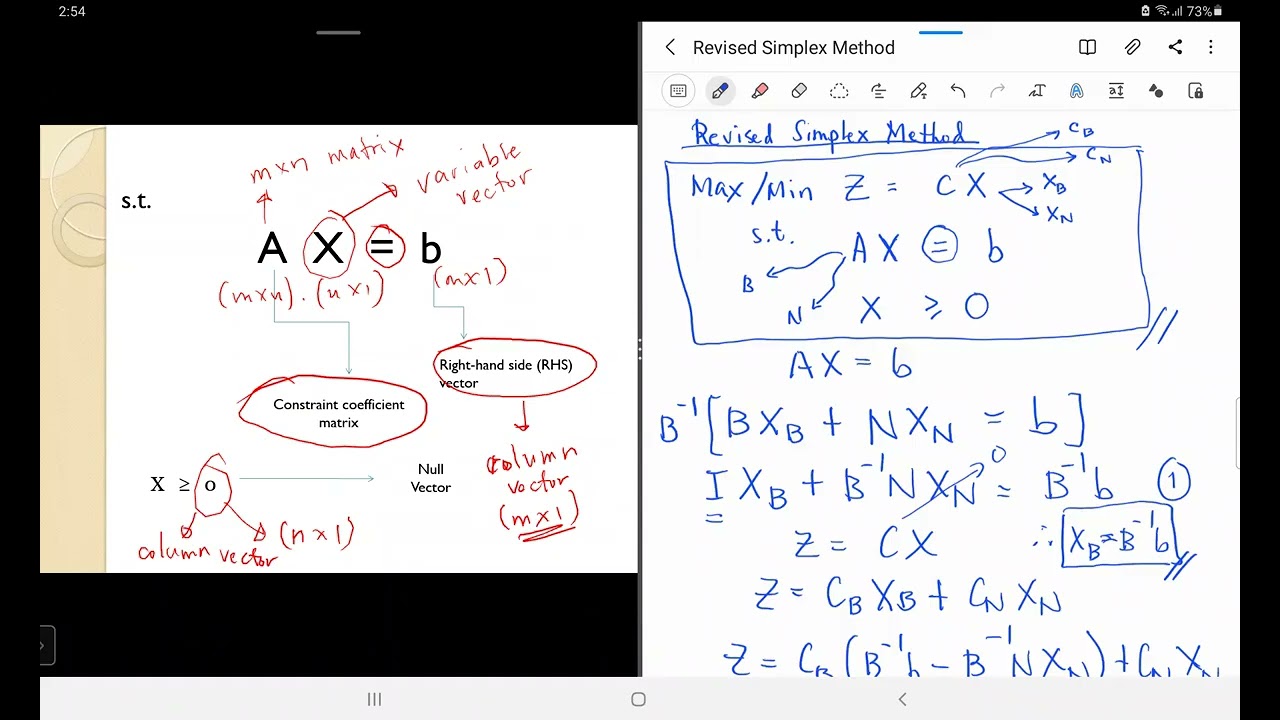 2:54
73%
Revised Simplex Method
mxn matrix
variable vector
s.t.
A X = b
(mxn) . (nx1)
(mx1)
Right-hand side (RHS)
vector
Constraint coefficient
matrix
column
vector
(mx1)
X ≥ 0
Null
Vector
column vector (nx1)
Revised Simplex Method
C_B
C_N
Max/Min Z = CX
X_B
X_N
s.t.
AX = b
B
N
X ≥ 0
AX = b
B⁻¹[BX_B + NX_N = b]
I X_B + B⁻¹N X_N = B⁻¹b ①
0
Z = CX
∴ X_B = B⁻¹b
Z = C_B X_B + C_N X_N
Z = C_B (B⁻¹b - B⁻¹N X_N) + C_N X_N